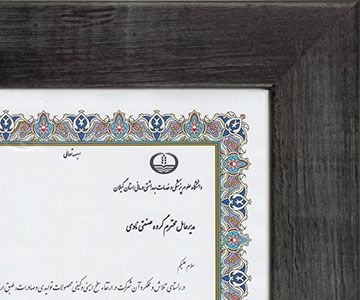 بسمه تعالی
دانشگاه علوم پزشکی و خدمات بهداشتی درمانی استان گیلان
مدیرعامل محترم گروه صنعتی نادی
سلام علیکم
در راستای تلاش و عملکرد آن شرکت در ارتقاء سطح ایمنی و کیفی محصولات تولیدی و صادرات، طبق